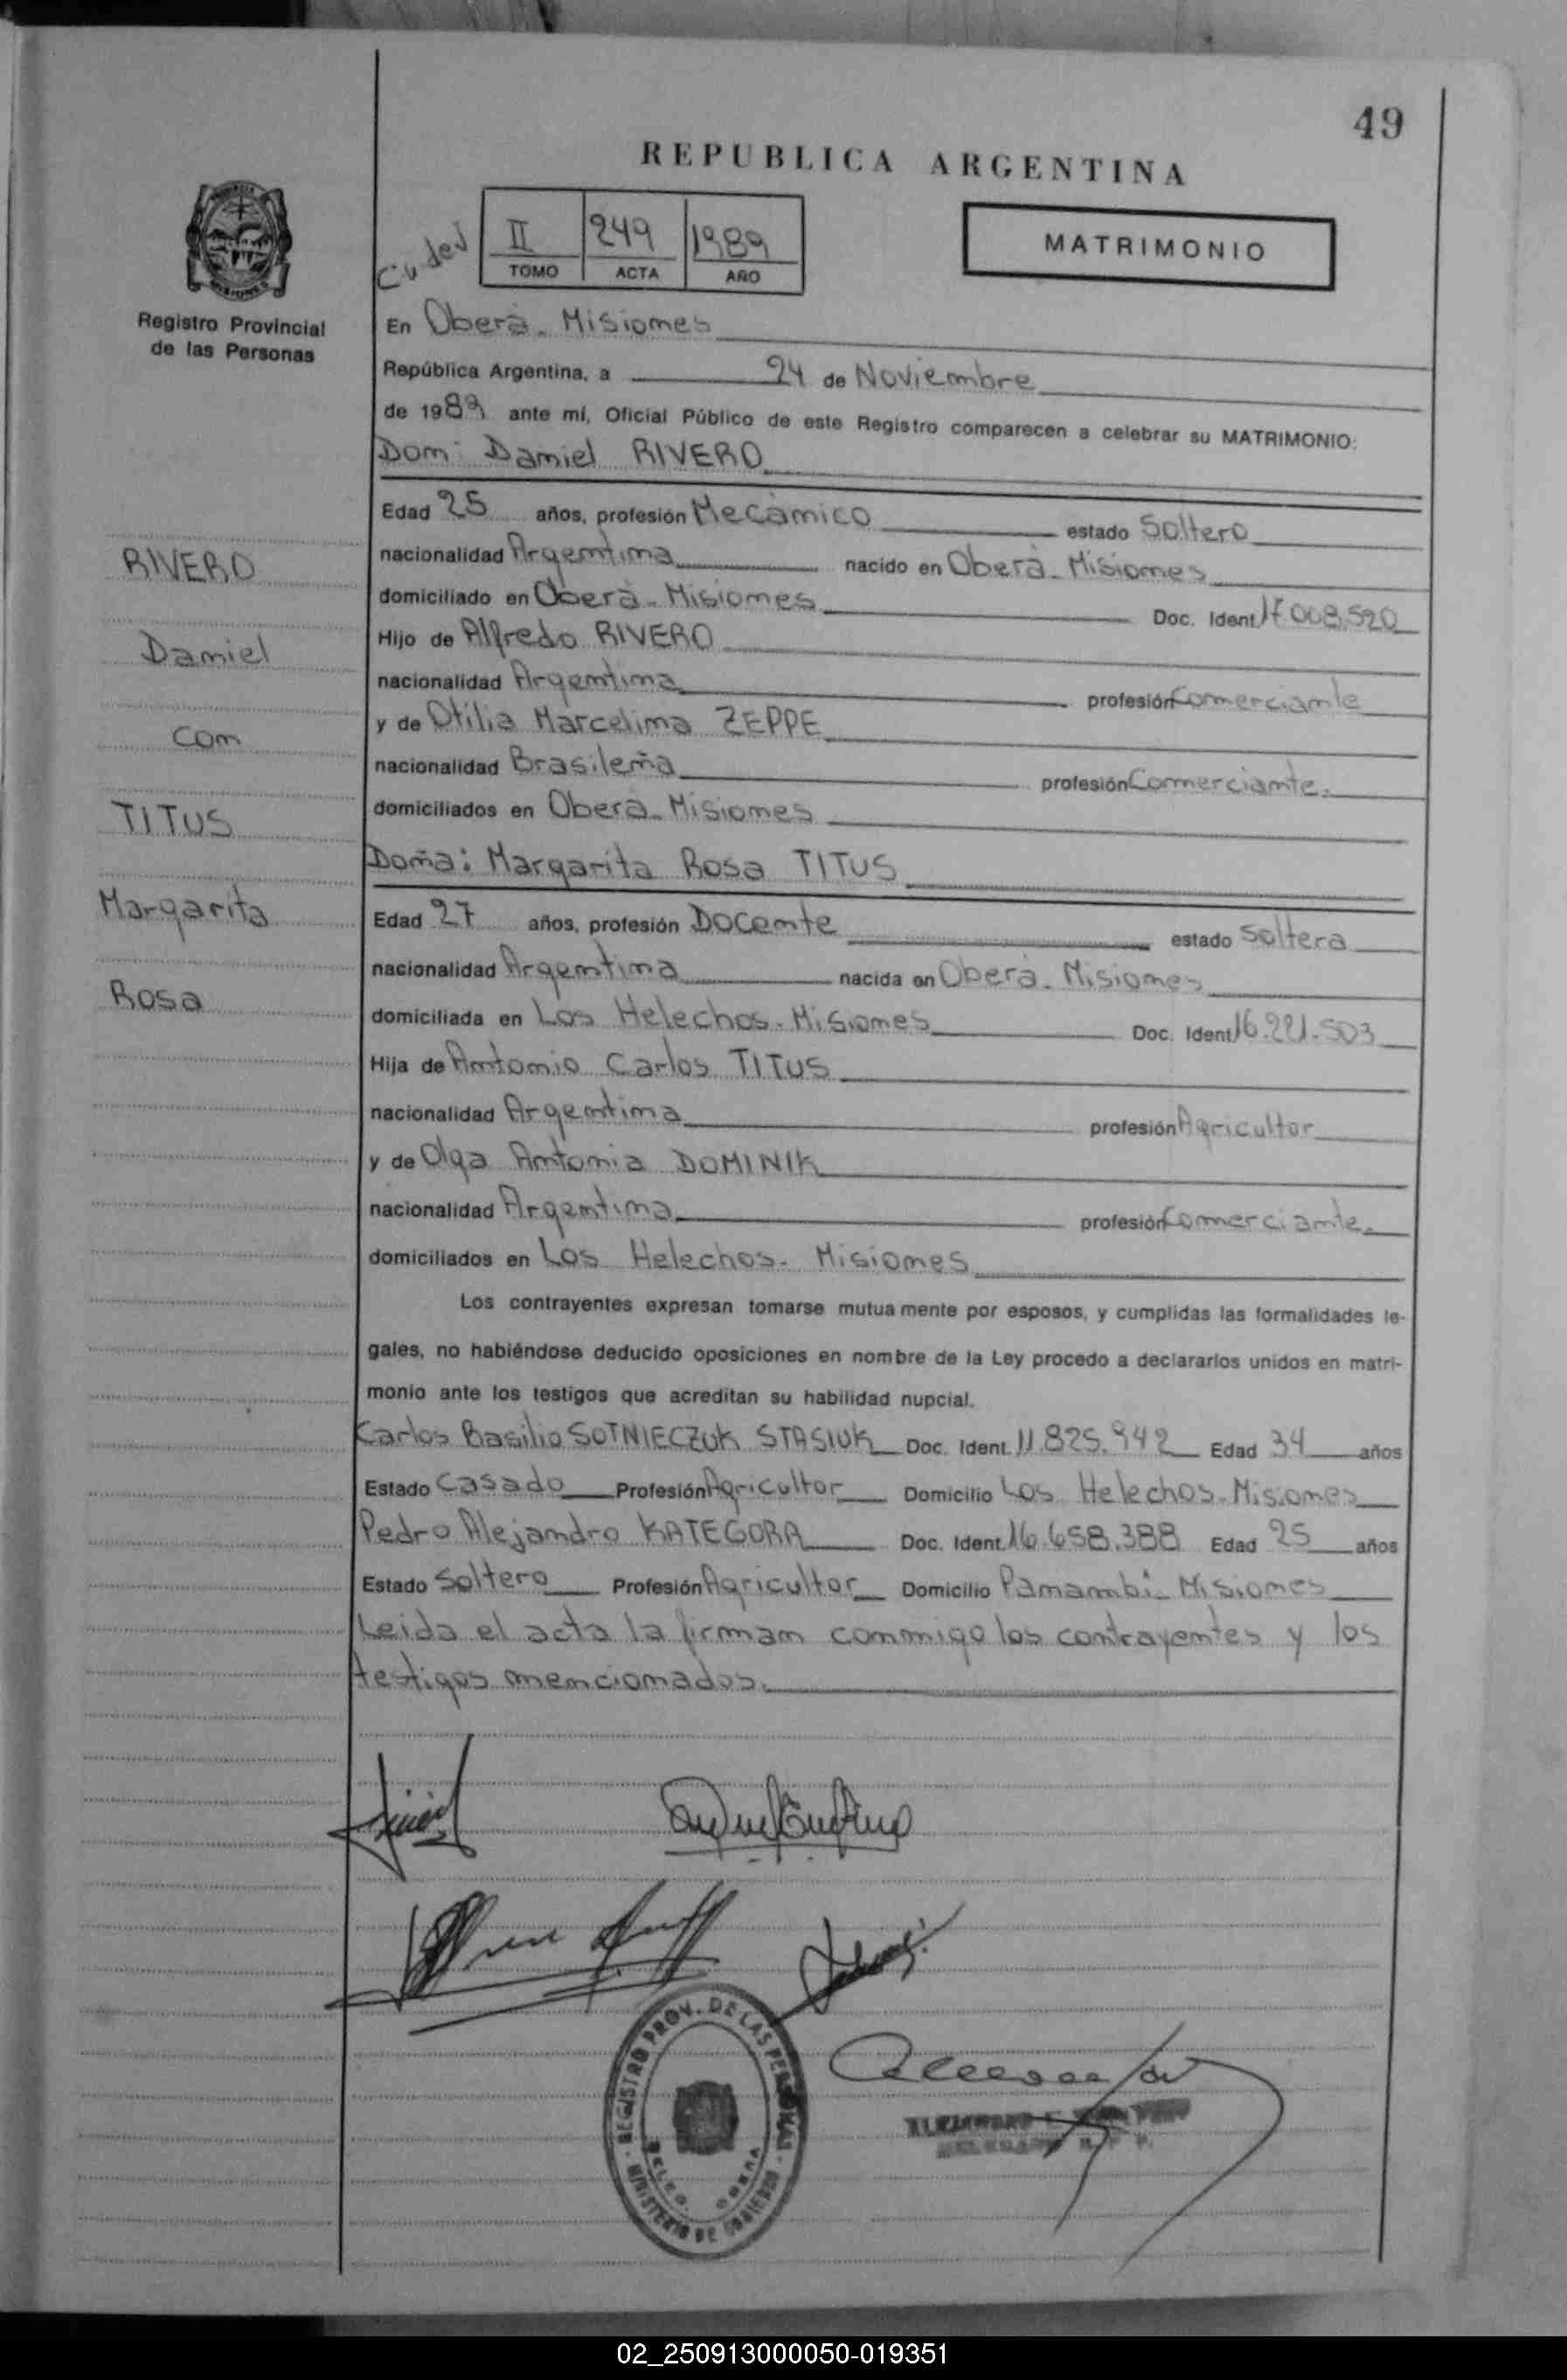 49
REPUBLICA ARGENTINA
MATRIMONIO
II 249 1989
TOMO ACTA AÑO
Registro Provincial
de las Personas
En Oberà - Misiones
República Argentina, a 24 de Noviembre
de 1989 ante mí, Oficial Público de este Registro comparecen a celebrar su MATRIMONIO:
Don: Daniel RIVERO
Edad 25 años, profesión Mecànico estado Soltero
RIVERO
nacionalidad Argentina nacido en Oberà - Misiones
domiciliado en Oberà - Misiones Doc. Ident. 17.008.520
Hijo de Alfredo RIVERO
Daniel
nacionalidad Argentina profesión Comerciante
y de Otilia Marcelina ZEPPE
con
nacionalidad Brasileña profesión Comerciante.
domiciliados en Oberà - Misiones
TITUS
Doña: Margarita Rosa TITUS
Margarita
Edad 27 años, profesión Docente estado Soltera
nacionalidad Argentina nacida en Oberà - Misiones
Rosa
domiciliada en Los Helechos - Misiones Doc. Ident. 16.221.503
Hija de Antonio Carlos TITUS
nacionalidad Argentina profesión Agricultor
y de Olga Antonia DOMINIK
nacionalidad Argentina profesión Comerciante.
domiciliados en Los Helechos - Misiones
Los contrayentes expresan tomarse mutuamente por esposos, y cumplidas las formalidades le-
gales, no habiéndose deducido oposiciones en nombre de la Ley procedo a declararlos unidos en matri-
monio ante los testigos que acreditan su habilidad nupcial.
Carlos Basilio SOTNIECZUK STASIUK Doc. Ident. 11.825.942 Edad 34 años
Estado Casado Profesión Agricultor Domicilio Los Helechos - Misiones
Pedro Alejandro KATEGORA Doc. Ident. 16.658.388 Edad 25 años
Estado Soltero Profesión Agricultor Domicilio Panambì - Misiones
Leida el acta la firman conmigo los contrayentes y los
testigos mencionados.
REGISTRO PROV. DE LAS PERSONAS
DELEG. OBERA
MINISTERIO DE GOBIERNO
02_250913000050-019351